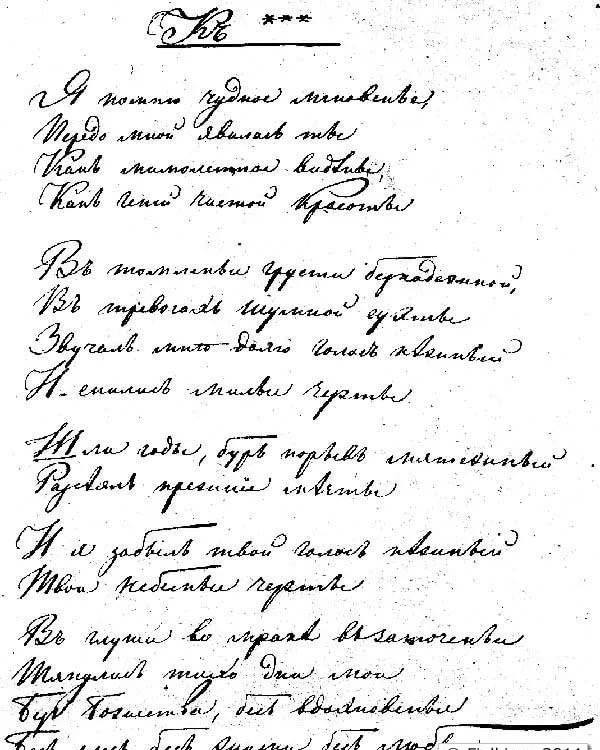 Къ ***
Я помню чудное мгновенье,
Передо мной явилась ты
Какъ мимолетное видѣнье,
Какъ геній чистой красоты
Въ томленьи грусти безнадежной,
Въ тревогахъ шумной суеты
Звучалъ мнѣ долго голосъ нѣжный
И снились милыя черты
Шли годы, бурь порывъ мятежный
Разсѣялъ прежнія мечты
И я забылъ твой голосъ нѣжный
Твои небесныя черты
Въ глуши во мракѣ заточенья
Тянулись тихо дни мои
Безъ божества, безъ вдохновенья
Безъ слезъ безъ жизни безъ любви